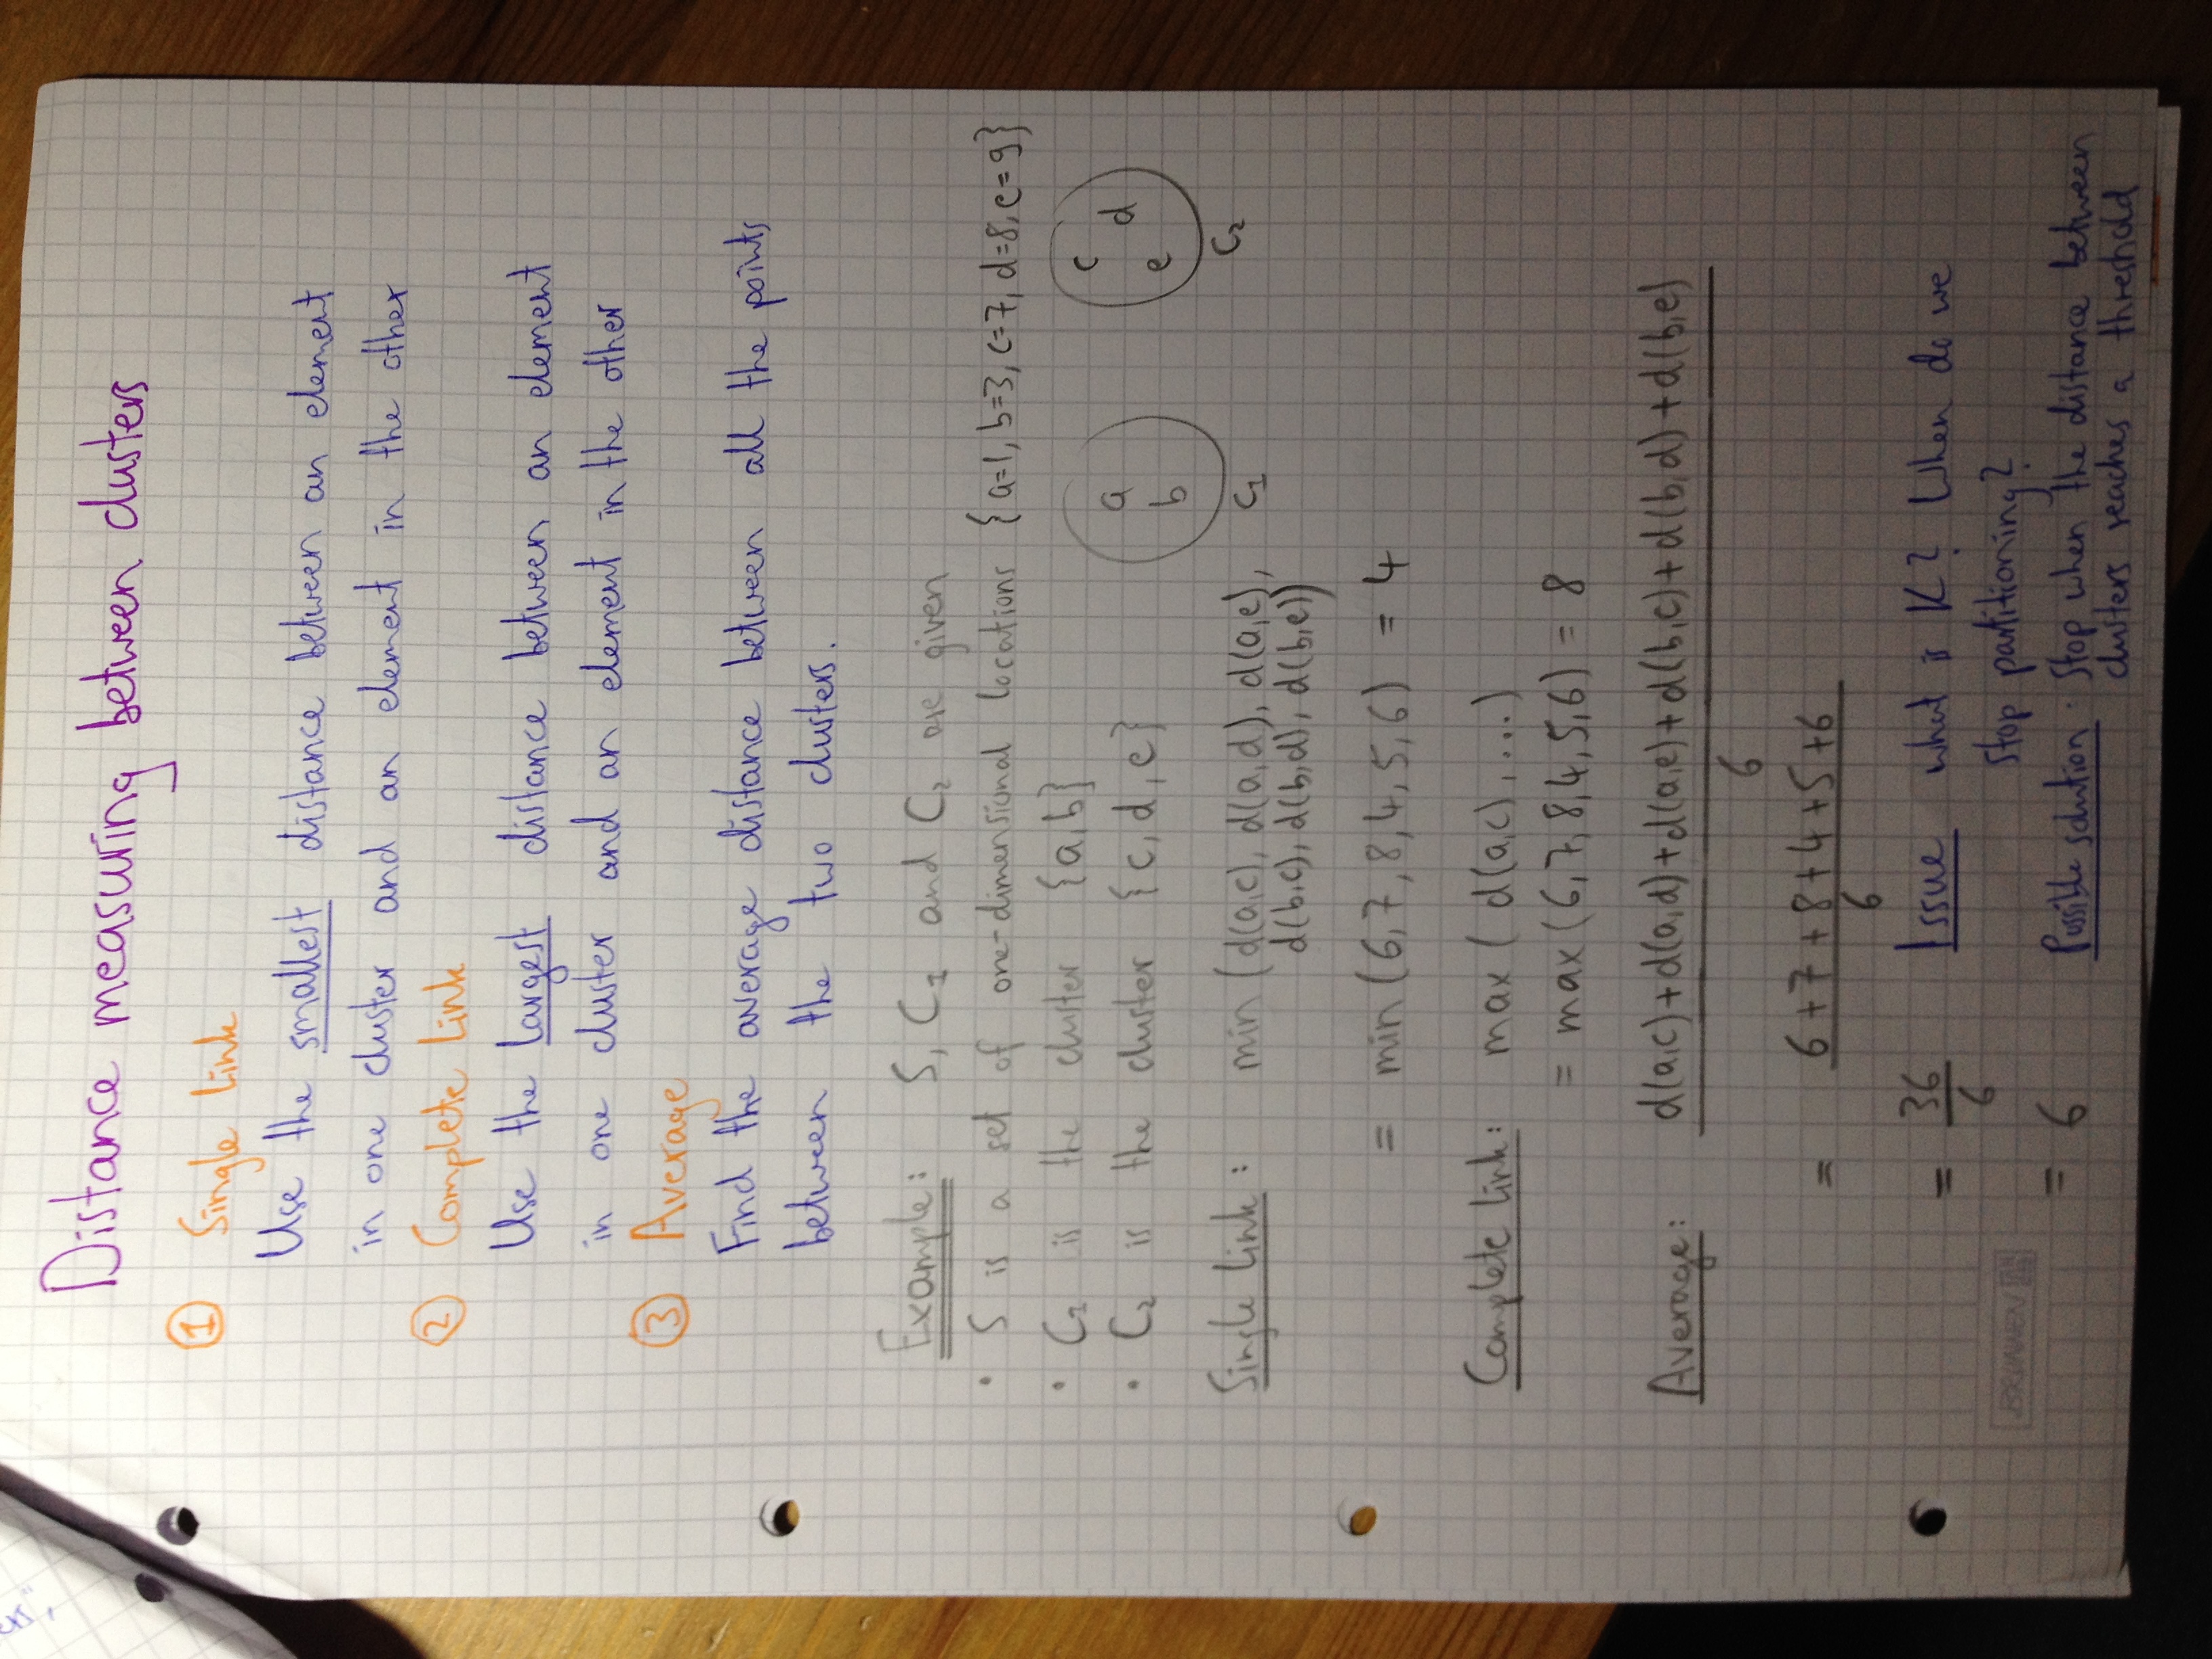 Distance measuring between clusters
① Single Link
Use the smallest distance between an element
in one cluster and an element in the other
② Complete Link
Use the largest distance between an element
in one cluster and an element in the other
③ Average
Find the average distance between all the points
between the two clusters.
Example: S, C₁ and C₂ are given
• S is a set of one-dimensional locations {a=1, b=3, c=7, d=8, e=9}
• C₁ is the cluster {a,b}
• C₂ is the cluster {c, d, e}
a
b
C₁
c
d
e
C₂
Single Link: min (d(a,c), d(a,d), d(a,e),
d(b,c), d(b,d), d(b,e))
= min (6,7,8,4,5,6) = 4
Complete Link: max ( d(a,c), ...)
= max (6,7,8,4,5,6) = 8
Average: d(a,c)+d(a,d)+d(a,e)+d(b,c)+d(b,d)+d(b,e)
6
= 6+7+8+4+5+6
6
= 36
6
= 6
Issue what is K? When do we
stop partitioning?
Possible solution · Stop when the distance between
clusters reaches a threshold
BRUNNEN